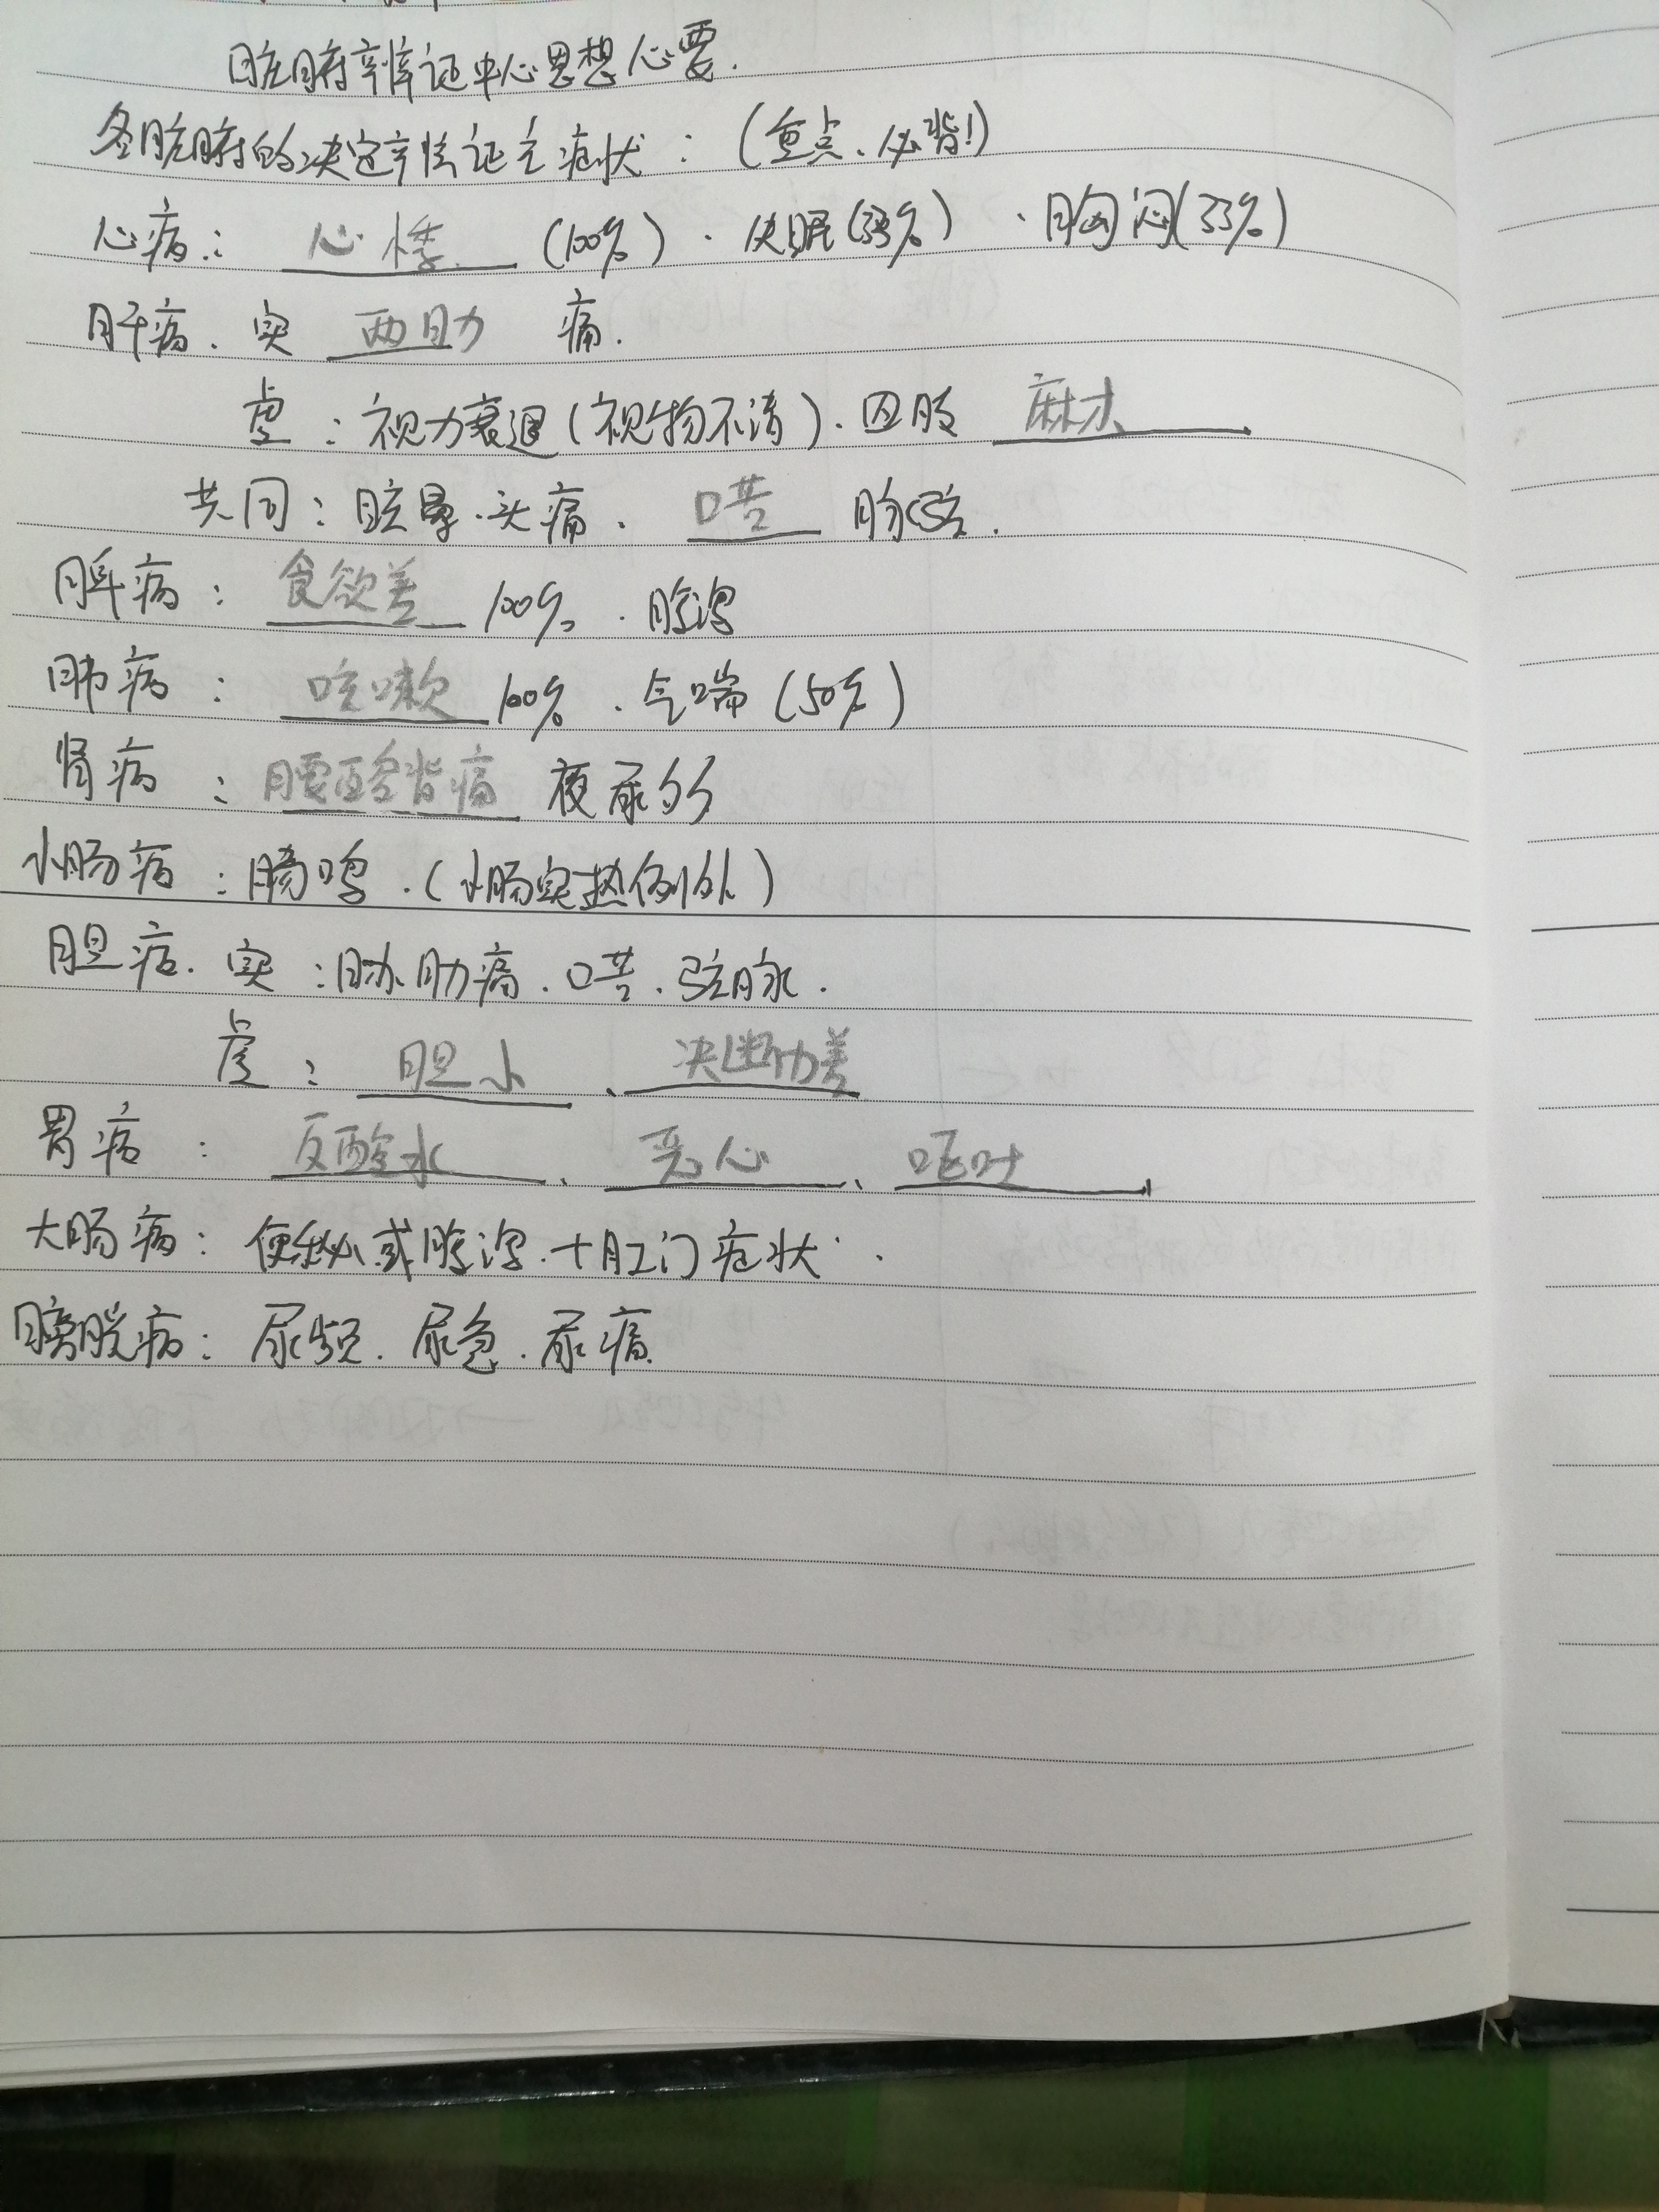 脏腑辛辨证中心思想心要.
各脏腑的决定辛辨证之症状：（重点、必背！）
心病：心悸（100%）、失眠（33%）、胸闷（33%）
肝病.实 两肋 痛.
虚：视力衰退（视物不清）.四肢 麻木
共同：眩晕.头痛.口苦 脉弦.
脾病：食欲差 100%.腹泻
肺病：咳嗽 100%.气喘（50%）
肾病：腰酸背痛 夜尿多
小肠病：肠鸣.（小肠实热例外）
胆病.实：胁肋痛.口苦.弦脉.
虚：胆小、决断力差
胃病：反酸水、恶心、呕吐
大肠病：便秘或腹泻.+肛门症状.
膀胱病：尿频.尿急.尿痛.